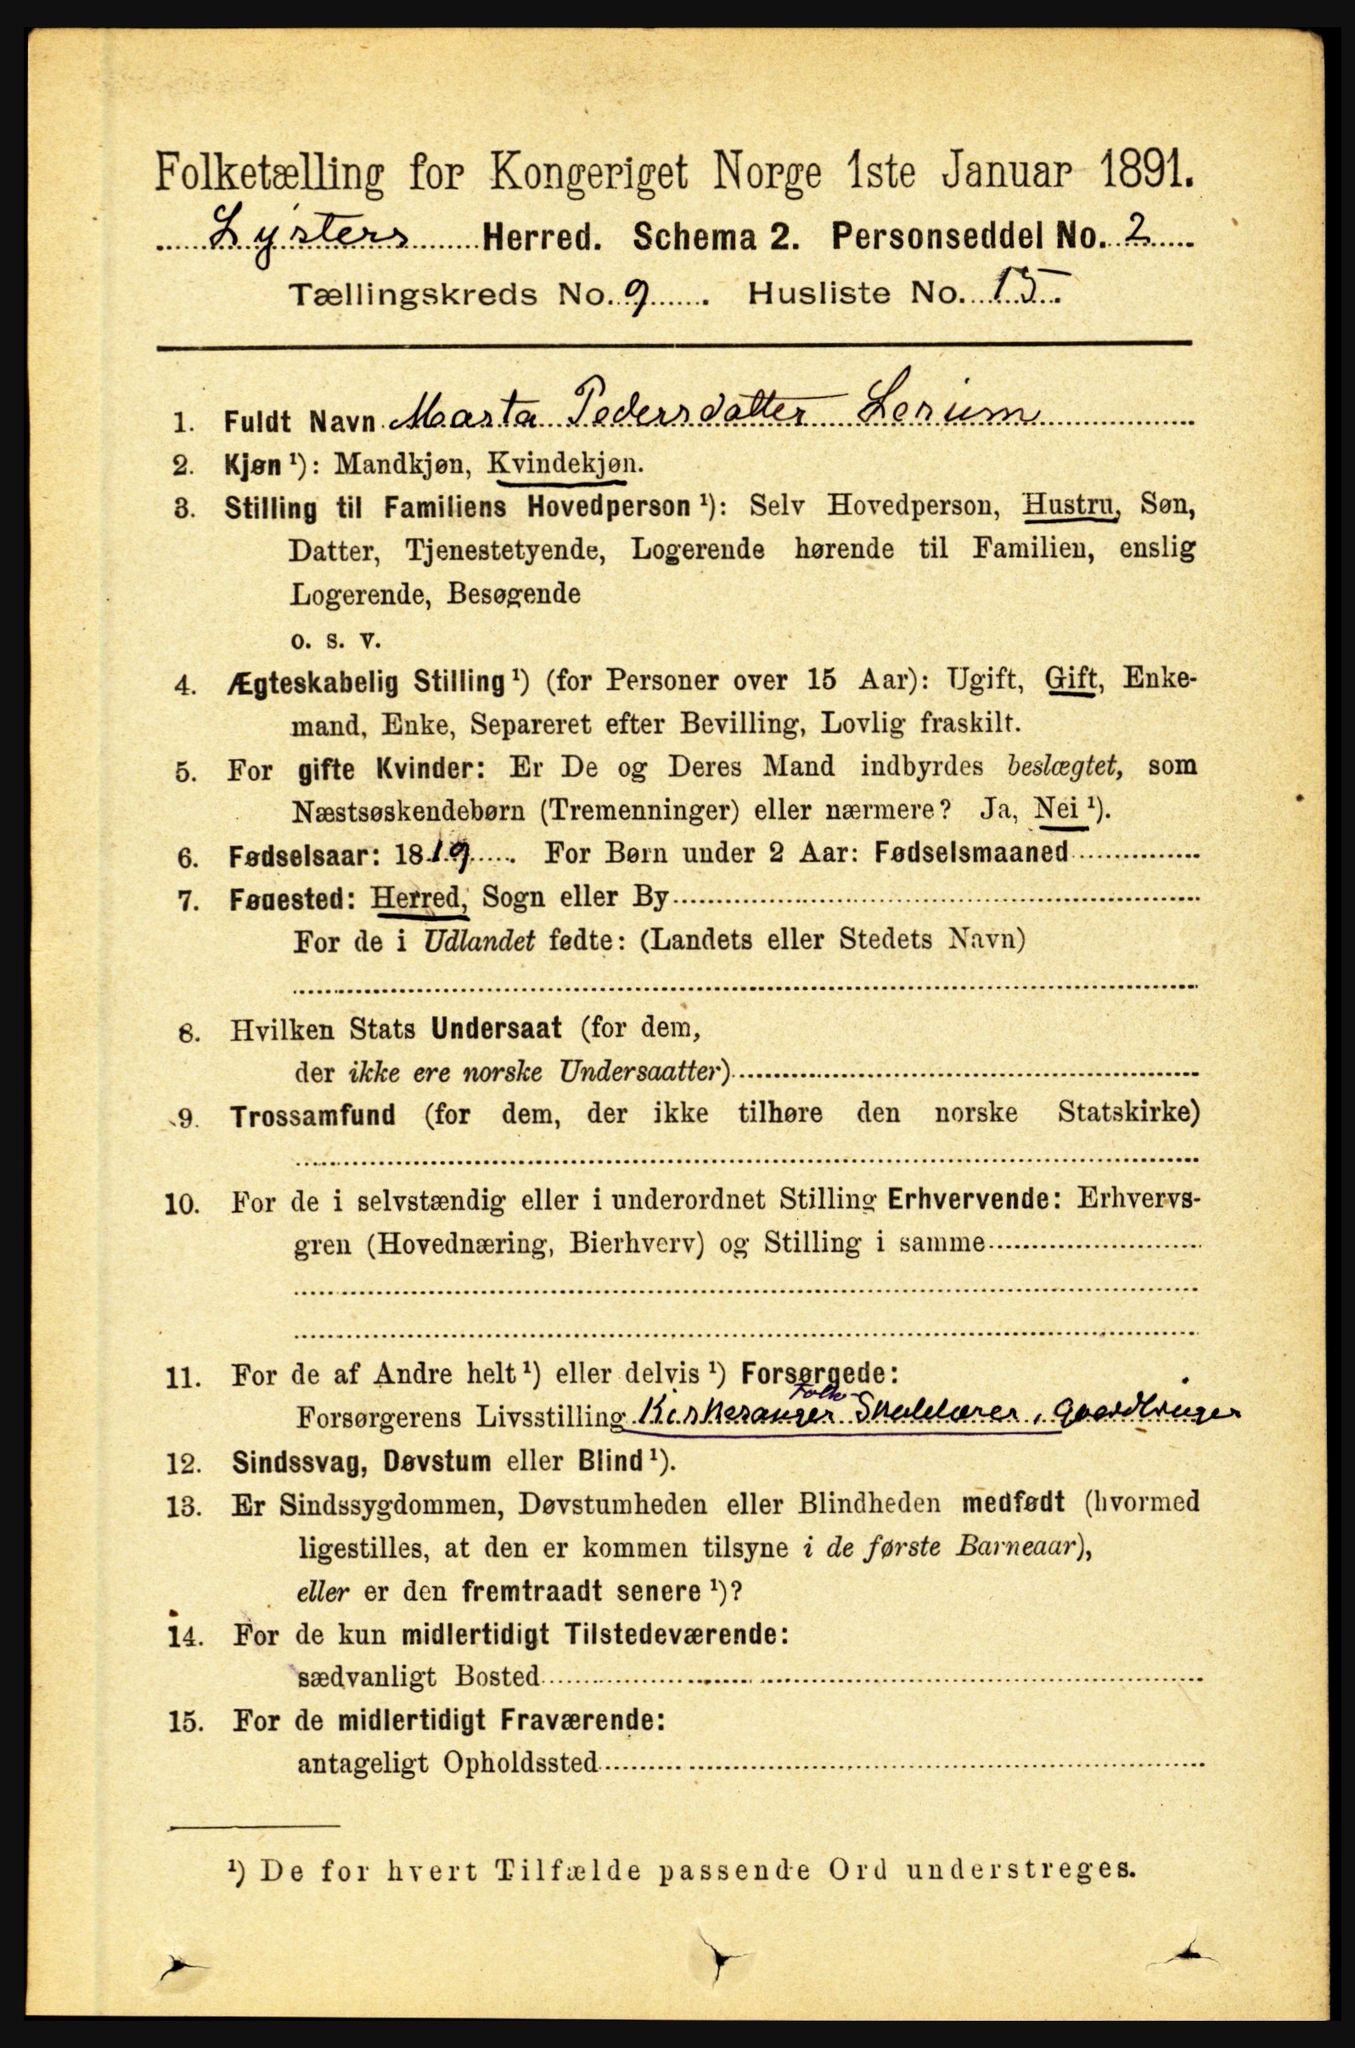 Folketælling for Kongeriget Norge 1ste Januar 1891.
Lysters Herred. Schema 2. Personseddel No. 2
Tællingskreds No. 9. Husliste No. 15
1. Fuldt Navn Marta Pedersdatter Lerum
2. Kjøn ¹): Mandkjøn, Kvindekjøn.
3. Stilling til Familiens Hovedperson ¹): Selv Hovedperson, Hustru, Søn,
Datter, Tjenestetyende, Logerende hørende til Familien, enslig
Logerende, Besøgende
o. s. v.
4. Ægteskabelig Stilling ¹) (for Personer over 15 Aar): Ugift, Gift, Enke-
mand, Enke, Separeret efter Bevilling, Lovlig fraskilt.
5. For gifte Kvinder: Er De og Deres Mand indbyrdes beslægtet, som
Næstsøskendebørn (Tremenninger) eller nærmere? Ja, Nei ¹).
6. Fødselsaar: 1819. For Børn under 2 Aar: Fødselsmaaned
7. Føuested: Herred, Sogn eller By
For de i Udlandet fødte: (Landets eller Stedets Navn)
8. Hvilken Stats Undersaat (for dem,
der ikke ere norske Undersaatter)
9. Trossamfund (for dem, der ikke tilhøre den norske Statskirke)
10. For de i selvstændig eller i underordnet Stilling Erhvervende: Erhvervs-
gren (Hovednæring, Bierhverv) og Stilling i samme
11. For de af Andre helt ¹) eller delvis ¹) Forsørgede:
Folke
Forsørgerens Livsstilling Kirkesanger Skolelærer, Gaardbruger
12. Sindssvag, Døvstum eller Blind ¹).
13. Er Sindssygdommen, Døvstumheden eller Blindheden medfødt (hvormed
ligestilles, at den er kommen tilsyne i de første Barneaar),
eller er den fremtraadt senere ¹)?
14. For de kun midlertidigt Tilstedeværende:
sædvanligt Bosted
15. For de midlertidigt Fraværende:
antageligt Opholdssted
¹) De for hvert Tilfælde passende Ord understreges.